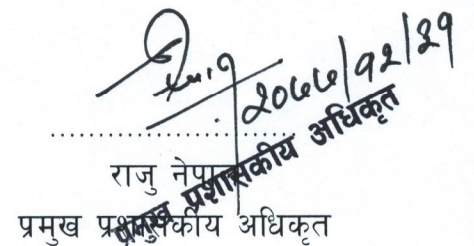 २०७७/१२/३१
प्रमुख प्रशासकीय अधिकृत
राजु नेपाल
प्रमुख प्रशासकीय अधिकृत